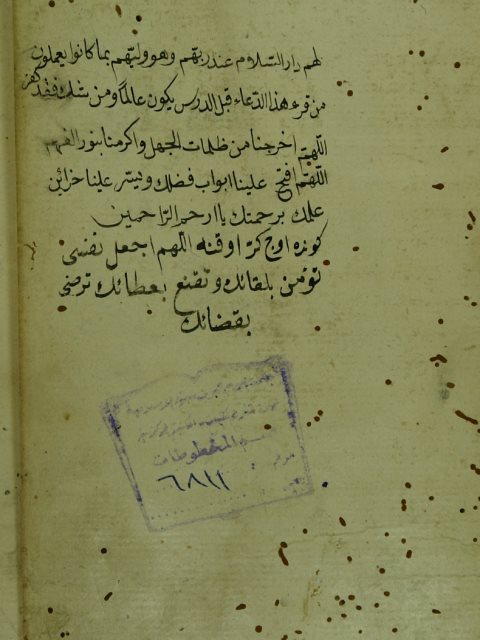 لهم دار السلام عند ربهم وهو وليهم بما كانوا يعملون
من قرء هذا الدعاء قبل الدرس يكون عالماً ومن شك فقد كفر
اللهم اخرجنا من ظلمات الجهل واكرمنا بنور الفهم
اللهم افتح علينا ابواب فضلك ويسر علينا خزائن
علمك برحمتك يا ارحم الراحمين
كونده اوج كره اوقنه اللهم اجعل نفسى
تؤمن بلقائك وتقنع بعطائك ترضى
بقضائك
المخطوطات
٦٨١١